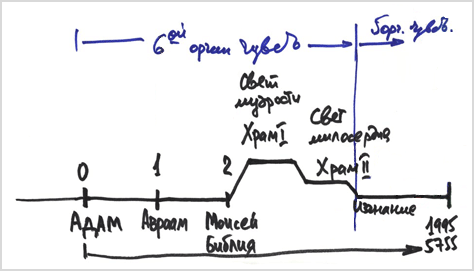 6ой орган чувств
5 орг. чувств.
Свет
мудрости
Храм I
Свет
милосердия
Храм II
0 1 2
АДАМ Авраам Моисей
Библия
изгнание
1995
5755